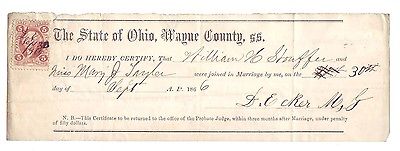 The State of Ohio, Wayne County, ss.
I DO HEREBY CERTIFY, That William H Stouffer and
Miss Mary J Taylor were joined in Marriage by me, on the 30th
day of Sept A. D. 1866
D. Ecker M, G
N. B.—This Certificate to be returned to the office of the Probate Judge, within three months after Marriage, under penalty
of fifty dollars.